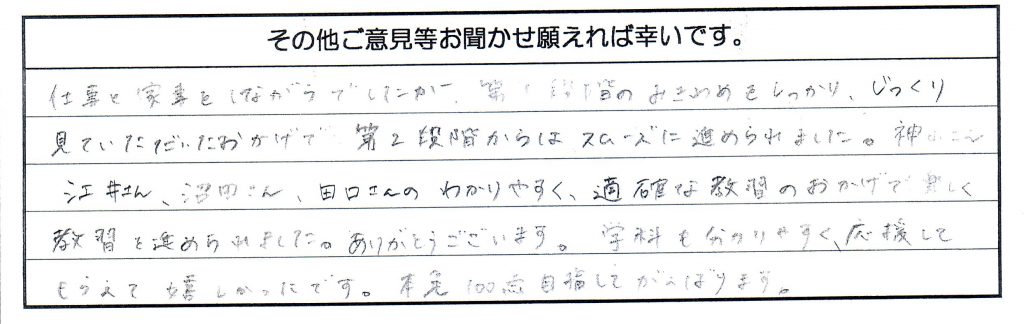 その他ご意見等お聞かせ願えれば幸いです。
仕事と家事をしながらでしたが、第1段階のみきわめをしっかり、じっくり
見ていただいたおかげで 第2段階からはスムーズに進められました。神山さん
江井さん、沼田さん、田口さんの わかりやすく、適確な教習のおかげで楽しく
教習を進められました。ありがとうございます。 学科も分かりやすく、応援して
もらえて嬉しかったです。本免100点目指してがんばります。